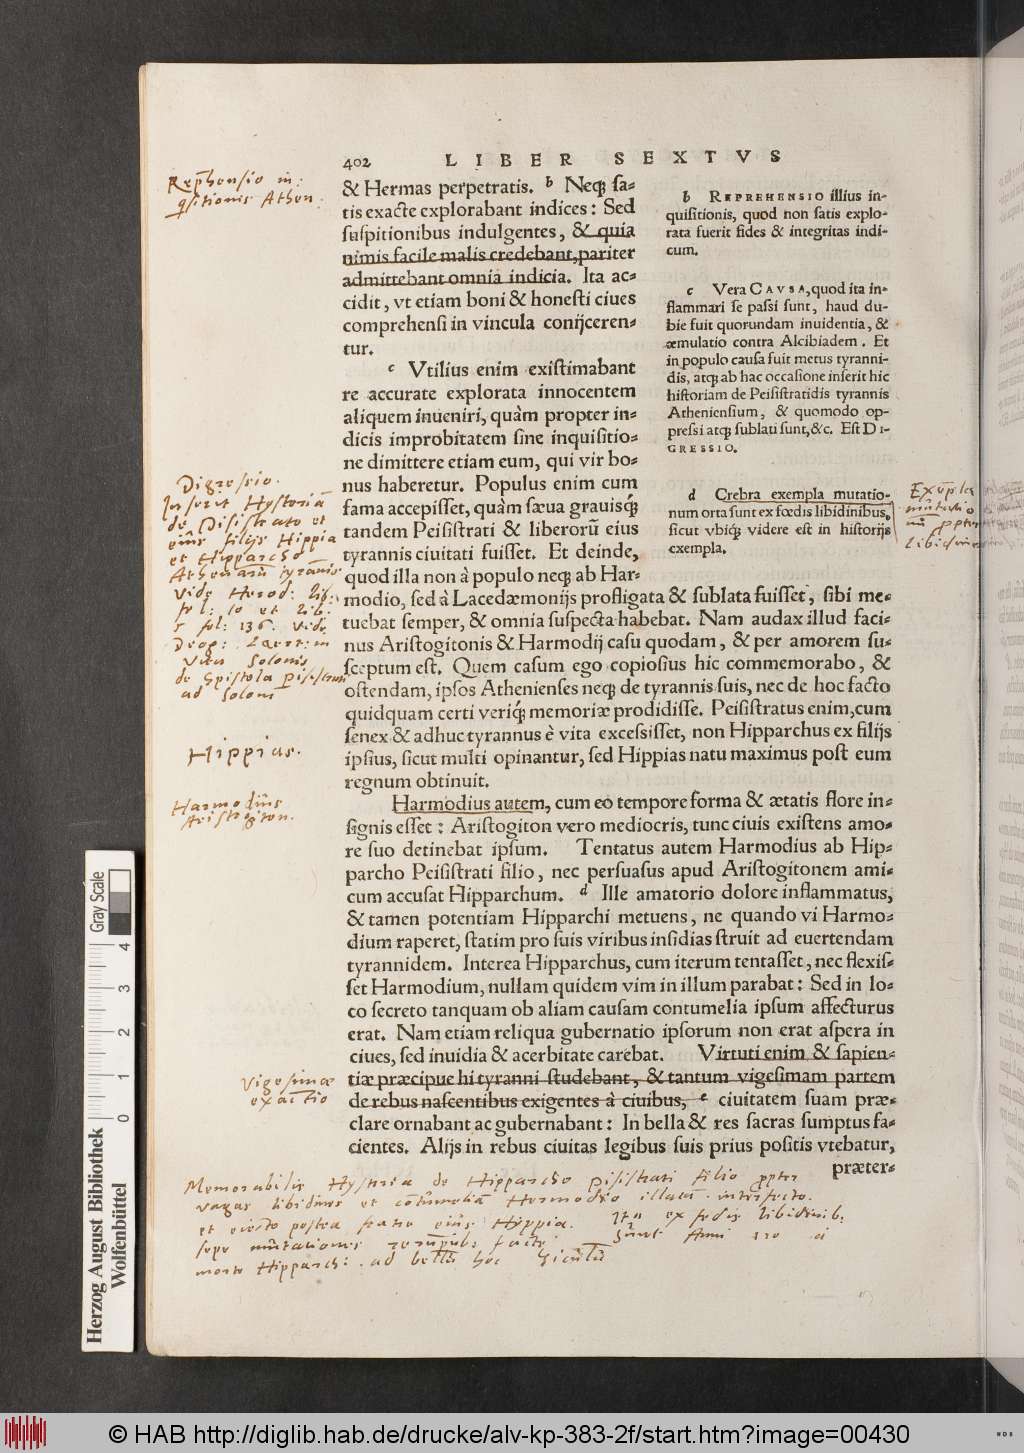 402 LIBER SEXTVS
& Hermas perpetratis. b Neq; sa-
tis exacte explorabant indices: Sed
suspitionibus indulgentes, & quia
nimis facile malis credebant, pariter
admittebant omnia indicia. Ita ac-
cidit, vt etiam boni & honesti ciues
comprehensi in vincula conijceren-
tur.
c Vtilius enim existimabant
re accurate explorata innocentem
aliquem inueniri, quàm propter in-
dicis improbitatem sine inquisitio-
ne dimittere etiam eum, qui vir bo-
nus haberetur. Populus enim cum
fama accepisset, quàm sæua grauisq́;
tandem Peisistrati & liberorū eius
tyrannis ciuitati fuisset. Et deinde,
quod illa non à populo neq; ab Har-
modio, sed à Lacedæmonijs profligata & sublata fuisset, sibi me-
tuebat semper, & omnia suspecta habebat. Nam audax illud faci-
nus Aristogitonis & Harmodij casu quodam, & per amorem su-
sceptum est. Quem casum ego copiosius hic commemorabo, &
ostendam, ipsos Athenienses neq; de tyrannis suis, nec de hoc facto
quidquam certi veriq́; memoriæ prodidisse. Peisistratus enim, cum
senex & adhuc tyrannus è vita excessisset, non Hipparchus ex filijs
ipsius, sicut multi opinantur, sed Hippias natu maximus post eum
regnum obtinuit.
Harmodius autem, cum eo tempore forma & ætatis flore in-
signis esset: Aristogiton vero mediocris, tunc ciuis existens amo-
re suo detinebat ipsum. Tentatus autem Harmodius ab Hip-
parcho Peisistrati filio, nec persuasus apud Aristogitonem ami-
cum accusat Hipparchum. d Ille amatorio dolore inflammatus,
& tamen potentiam Hipparchi metuens, ne quando vi Harmo-
dium raperet, statim pro suis viribus insidias struit ad euertendam
tyrannidem. Interea Hipparchus, cum iterum tentasset, nec flexis-
set Harmodium, nullam quidem vim in illum parabat: Sed in lo-
co secreto tanquam ob aliam causam contumelia ipsum affecturus
erat. Nam etiam reliqua gubernatio ipsorum non erat aspera in
ciues, sed inuidia & acerbitate carebat. Virtuti enim & sapien-
tiæ præcipue hi tyranni studebant, & tantum vigesimam partem
de rebus nascentibus exigentes à ciuibus, e ciuitatem suam præ-
clare ornabant ac gubernabant: In bella & res sacras sumptus fa-
cientes. Alijs in rebus ciuitas legibus suis prius positis vtebatur,
præter-
b REPREHENSIO illius in-
quisitionis, quod non satis explo-
rata fuerit fides & integritas indi-
cum.
c Vera CAVSA, quod ita in-
flammari se passi sunt, haud du-
bie fuit quorundam inuidentia, &
æmulatio contra Alcibiadem. Et
in populo causa fuit metus tyranni-
dis, atq; ab hac occasione inserit hic
historiam de Peisistratidis tyrannis
Atheniensium, & quomodo op-
pressi atq; sublati sunt, &c. Est DI-
GRESSIO.
d Crebra exempla mutatio-
num orta sunt ex fœdis libidinibus,
sicut vbiq; videre est in historijs
exempla.
Rephensio in:
qsitionis Athen.
Digressio.
Inserit Hystoriā
de Pisistrato et
eiūs filijs Hippia
et Hipparcho
Atheniarū tyrannis
Vide Herod: lib:
fol: 10 et lib:
5 fol: 136. Vide
Diog: Laert: in
Vita Solonis
de Epistola pisistrati
ad Soloni
Hippias.
Harmodiūs
Aristogiton.
Vigesimæ
exactio
Exēpla
mūtatio
nū ppter
libidines
Memorabilis Hystoria de Hipparcho pisistrati filio ppter
vagas libidines et contūmeliā Hermodio illatā interfecto.
et eiecto postea fratre eiūs Hippia. Itē ex fedis libidinib:
sepe mūtationes rerūpūb: facte sūnt Anni
morte Hipparch: ad bellū hoc Siculū
Gray Scale
0 1 2 3 4
Herzog August Bibliothek
Wolfenbüttel
© HAB http://diglib.hab.de/drucke/alv-kp-383-2f/start.htm?image=00430